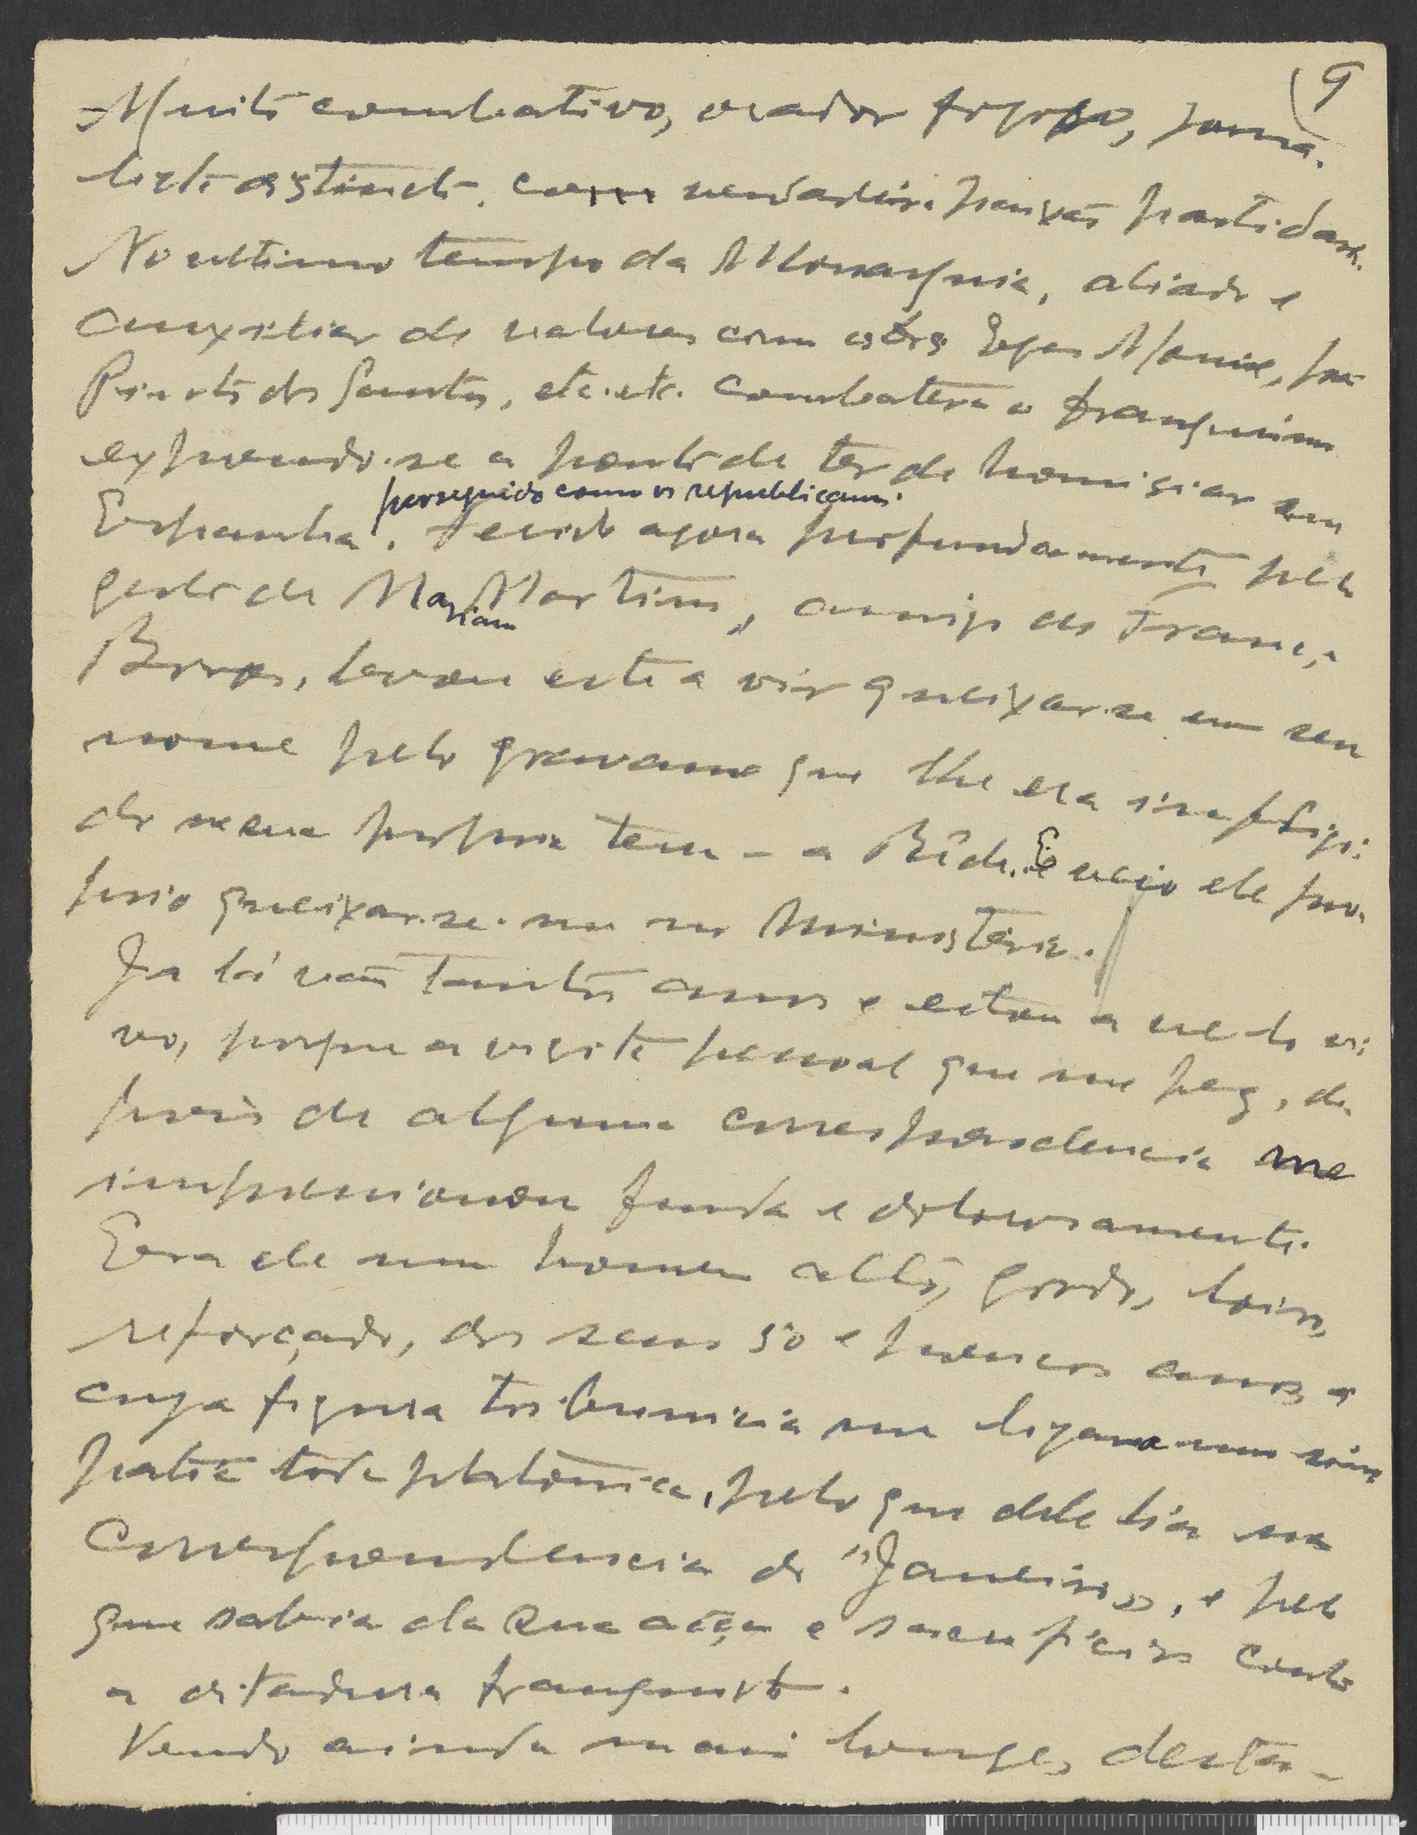 9
Muito combativo, orador fogoso, jorna-
lista distincto, com verdadeira paixão partidaria.
No ultimo tempo da Monarquia, aliado e
auxiliar de valores com estes Egas Moniz, João
Pinto dos Santos, etc. etc. combatera o franquismo
expondo-se a ponto de ter de homisiar em
Espanha, perseguido como os republicanos.
Ferido agora profundamente pelo
gesto de Mariam Martins, amigo de França
Borges, levou este a vir queixar-se em seu
nome pelo gravame que lhe era infligi-
do na sua propria terra - a Bêda. E veio ele pro-
prio queixar-se-me no Ministerio.
Ja lá vão tantos anos e estou a ve-lo vi-
vo, porque a visita pessoal que me fez, de-
pois de alguma correspondencia me
impressionou funda e dolorosamente.
Era ele um homem alto, gordo, loiro,
reforçado, dos seus 50 e poucos anos, a
cuja figura tribunicia me ligava uma sim-
patia toda platónica, pelo que dele lia na
correspondencia do "Janeiro", e pelo
que sabia da sua acção e sacrificios contra
a ditadura franquista.
Vendo ainda mais longe, desta-